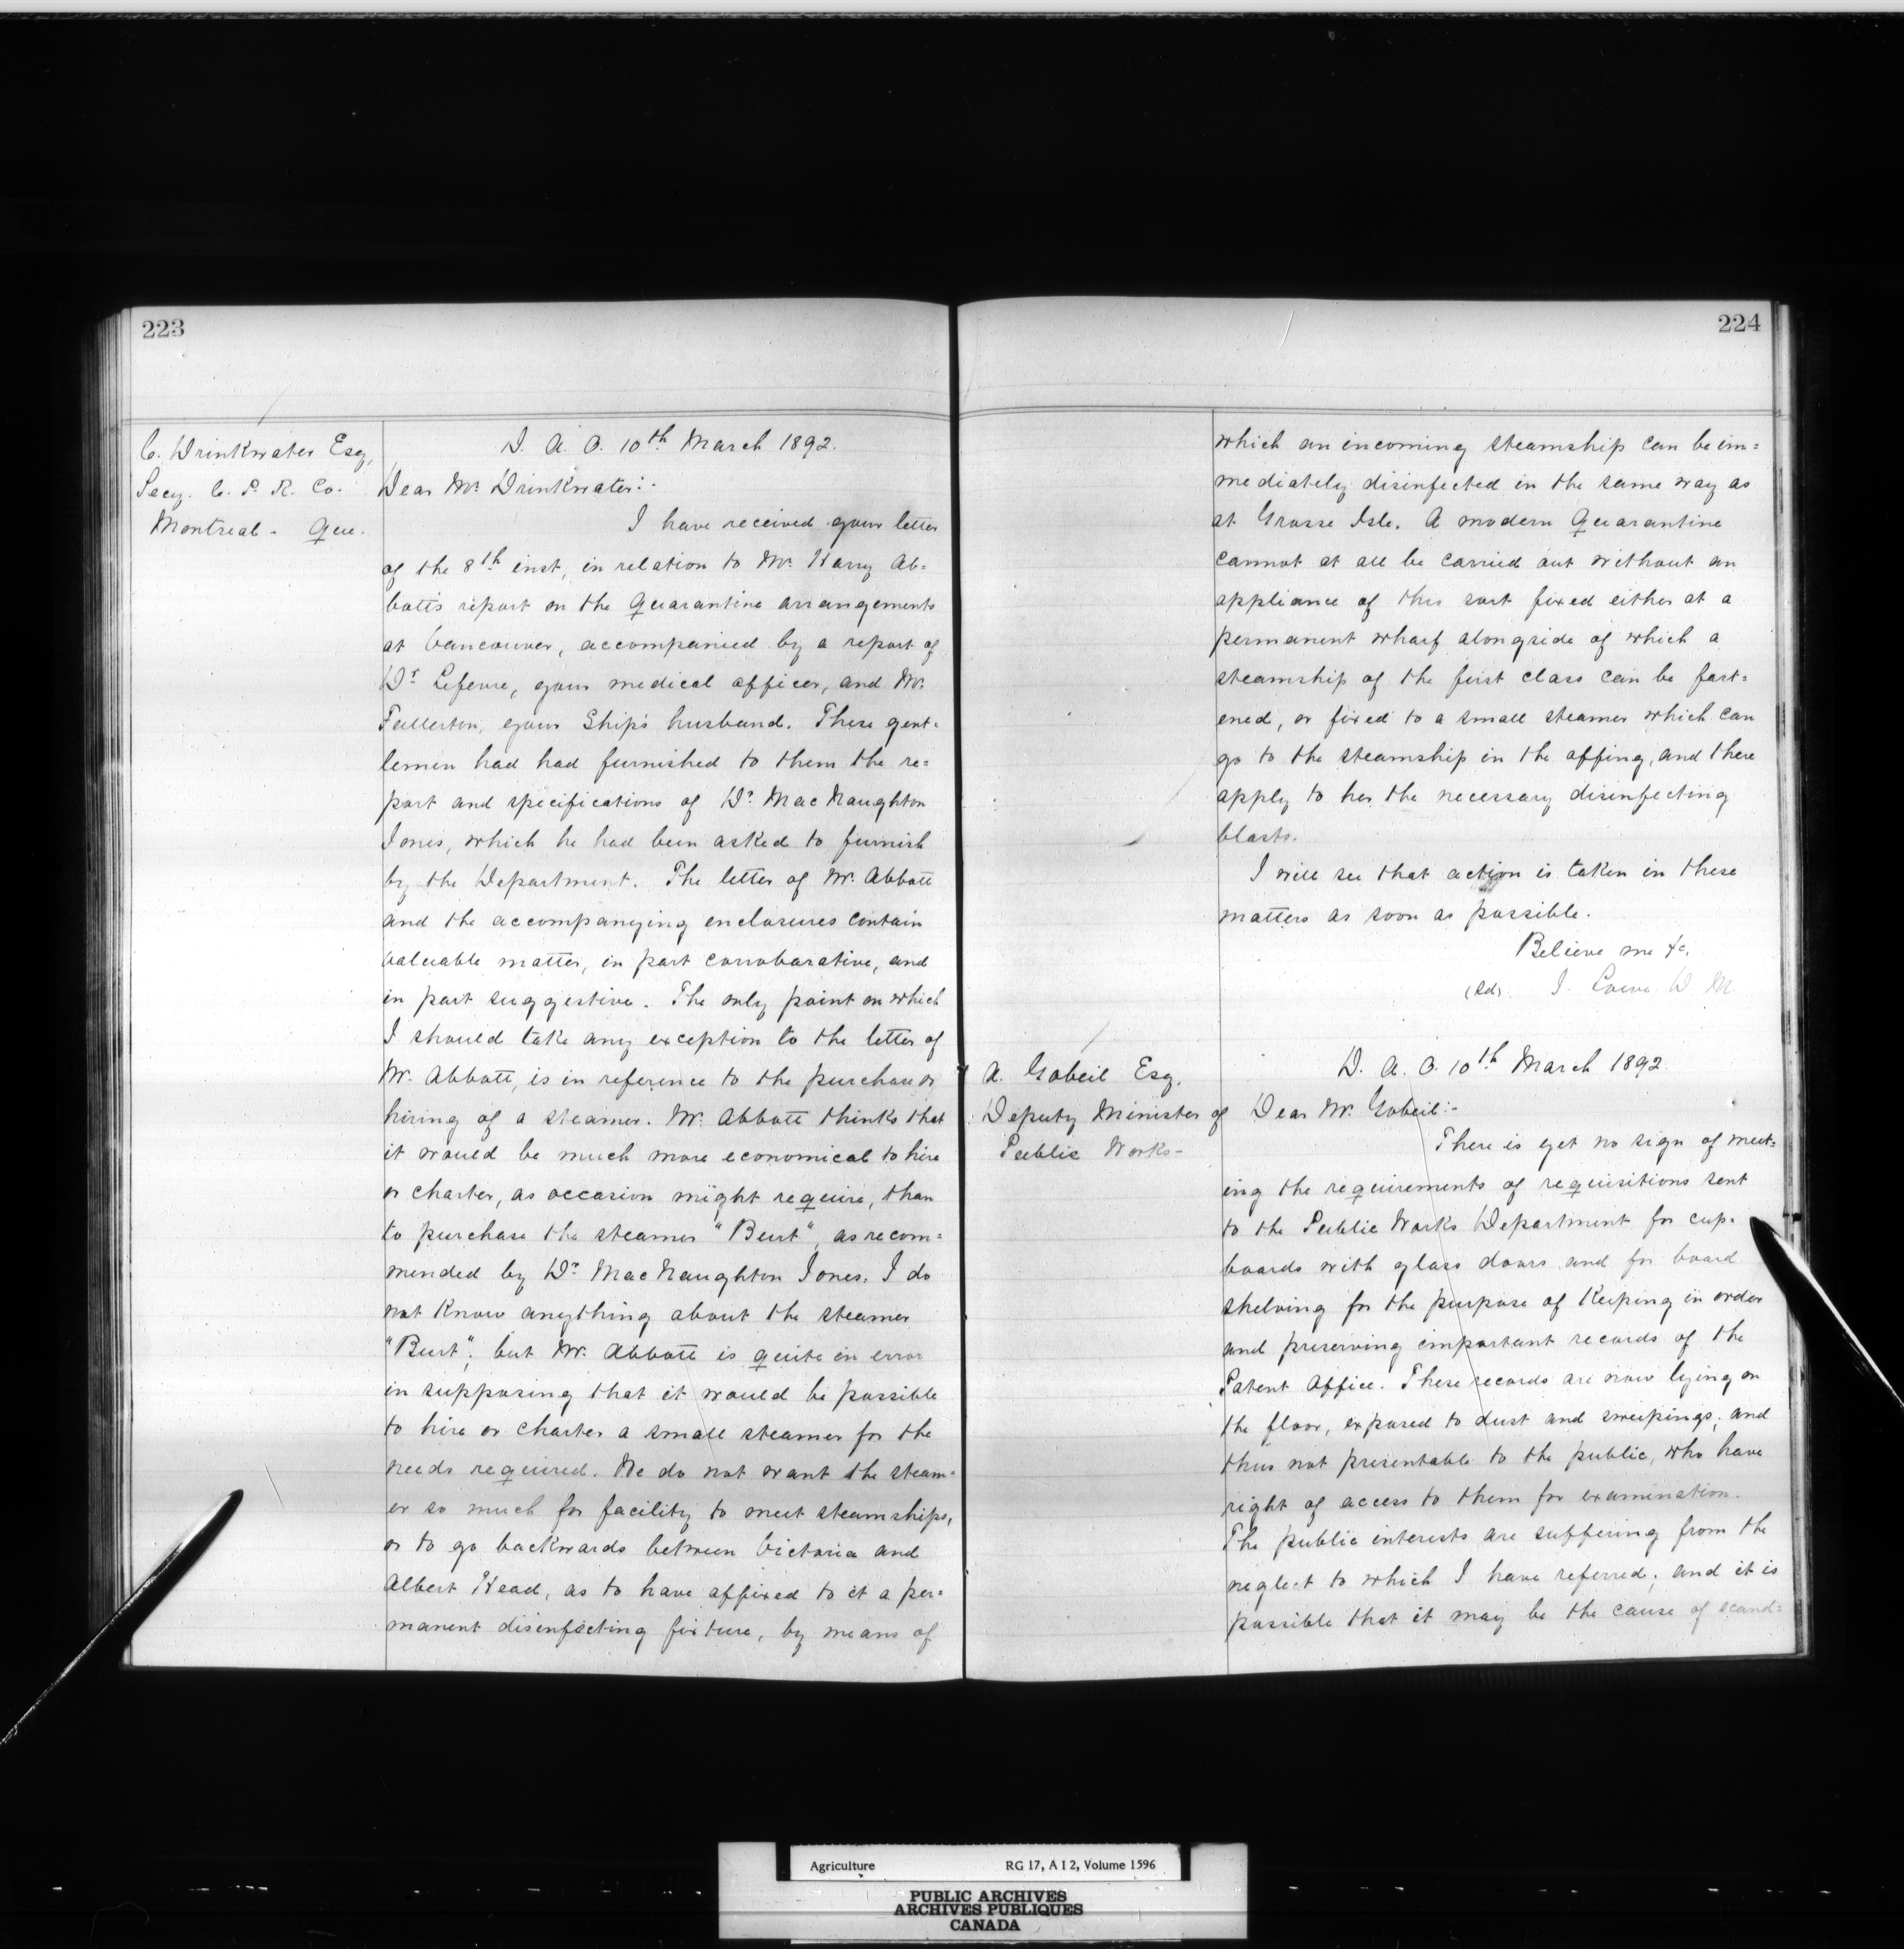 223
C. Drinkwater Esq,
Secy. C. P. R. Co.
Montreal - Que.
D. A. O. 10th March 1892.
Dear Mr. Drinkwater:-
I have received your letter
of the 8th inst, in relation to Mr. Harry Ab=
bott's report on the Quarantine arrangements
at Vancouver, accompanied by a report of
Dr. Lefevre, your medical officer, and Mr.
Fullerton, your Ship's husband. These gent=
lemen had had furnished to them the re=
port and specifications of Dr. MacNaughton
Jones, which he had been asked to furnish
by the Department. The letter of Mr. Abbott
and the accompanying enclosures contain
valuable matter, in part corroborative, and
in part suggestive. The only point on which
I should take any exception to the letter of
Mr. Abbott, is in reference to the purchase or
hiring of a steamer. Mr. Abbott thinks that
it would be much more economical to hire
or charter, as occasion might require, than
to purchase the steamer "Burt", as recom=
mended by Dr. MacNaughton Jones. I do
not know anything about the steamer
"Burt", but Mr. Abbott is quite in error
in supposing that it would be possible
to hire or charter a small steamer for the
needs required. We do not want the steam=
er so much for facility to meet steamships,
or to go backwards between Victoria and
Albert Head, as to have affixed to it a per=
manent disinfecting fixture, by means of
224
which an incoming steamship can be im=
mediately disinfected in the same way as
at Grosse Isle. A modern Quarantine
cannot at all be carried out without an
appliance of this sort fixed either at a
permanent wharf alongside of which a
steamship of the first class can be fast=
ened, or fixed to a small steamer which can
go to the steamship in the offing, and there
apply to her the necessary disinfecting
blasts.
I will see that action is taken in these
matters as soon as possible.
Believe me &c.
(Sd). J. Lowe D M
A. Gobeil Esq.
Deputy Minister of
Public Works-
D. A. O. 10th March 1892.
Dear Mr. Gobeil:-
There is yet no sign of meet=
ing the requirements of requisitions sent
to the Public Works Department for cup=
boards with glass doors and for board
shelving for the purpose of keeping in order
and preserving important records of the
Patent Office. These records are now lying on
the floor, exposed to dust and sweepings; and
thus not presentable to the public, who have
right of access to them for examination.
The public interests are suffering from the
neglect to which I have referred; and it is
possible that it may be the cause of scand=
Agriculture RG 17, A I 2, Volume 1596
PUBLIC ARCHIVES
ARCHIVES PUBLIQUES
CANADA